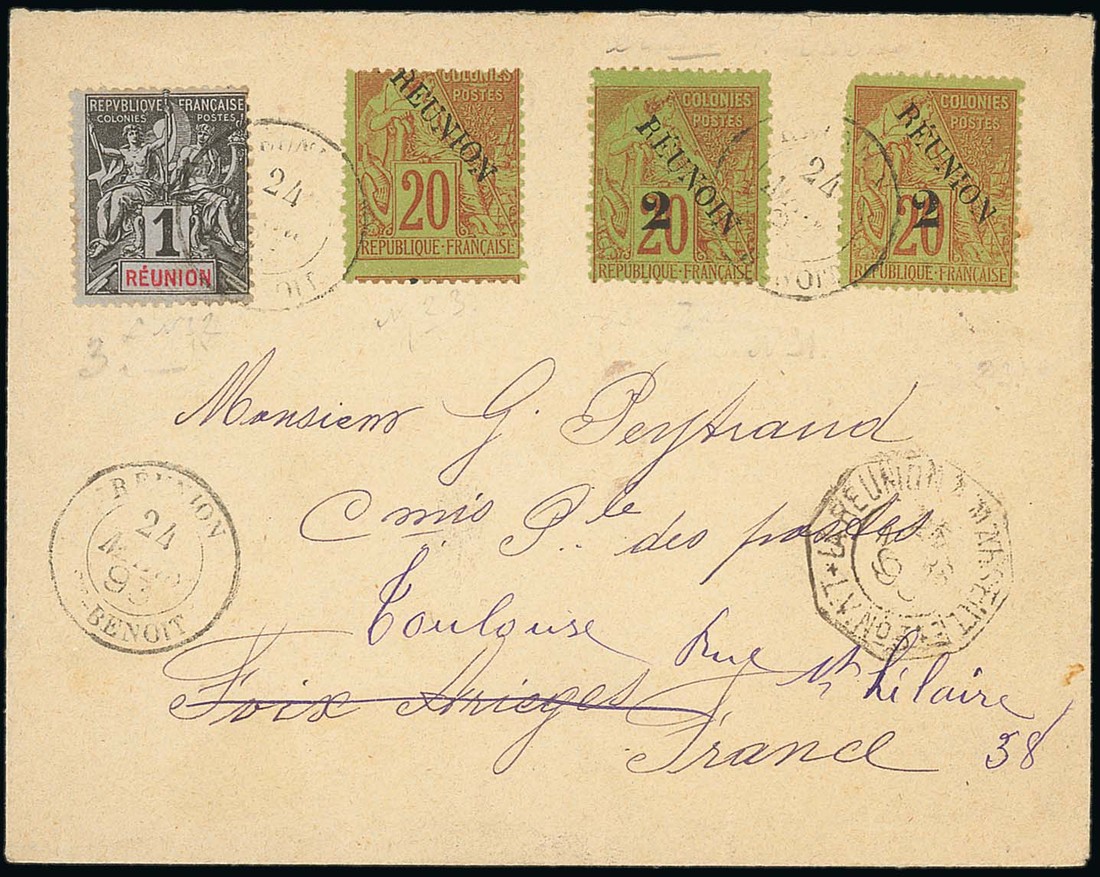 REPVBLIQUE FRANÇAISE
COLONIES POSTES
1
RÉUNION
COLONIES
POSTES
RÉUNION
20
REPUBLIQUE-FRANÇAISE
COLONIES
POSTES
RÉUNOIN
2
20
REPUBLIQUE-FRANÇAISE
COLONIES
POSTES
RÉUNION
2
20
REPUBLIQUE-FRANÇAISE
24
OIT
24
Monsieur G. Peytraud
Cmis Ple des postes
Toulouse Rue St hilaire
38
Foix Arièges
France
RÉUNION
24
93
BENOIT
LA RÉUNION A MARSEILLE